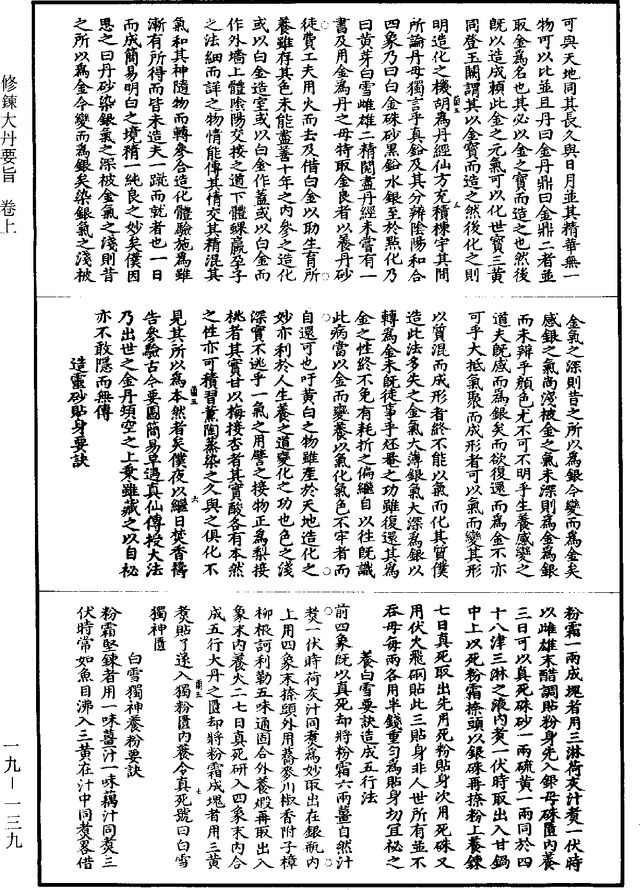 可與天地同其長久與日月並其精華無一
物可以比並且丹曰金丹鼎曰金鼎二者並
取金為名也其必以金之寶而造之也然後
既以造成賴此金之元氣可以化世寶三黃
同登玉闕謂其以金寶而造之然後化之則
明造化之機胡為丹經仙方充積棟宇其間
所論丹母獨言乎真鉛及其分辨陰陽和合
四象乃曰白金硃砂黑鉛水銀至於點化乃
曰黃芽白雪雌雄二精閱盡丹經未嘗有一
書及用金為丹之母特取金良者以養丹砂
徒費工夫用火而去及借白金以助生育所
養雖存其色未能盡善十年之內參之造化
或以白金造室或以白金作蓋或以白金而
作外墻上體陰陽交接之道下體蜾蠃孕子
之法細而詳之物情能傳其情交其精混其
氣和其神隨物而轉參合造化體驗施為雖
漸有所得而皆未造夫一蹴而就者也一日
而成簡易明白之境精一純良之妙矣僕因
思之曰丹砂染銀氣之深被金氣之淺則昔
之所以為金今變而為銀矣染銀氣之淺被
金氣之深則昔之所以為銀今變而為金矣
感銀之氣尚淺被金之氣未深則為金為銀
而未辨乎顏色尤不可不明乎生養感變之
道夫既感而為銀矣而欲復還而為金不亦
可乎大抵氣聚而成形者可以氣而變其形
以質混而成形者終不能以氣而化其質僕
造此法多失之金氣大薄銀氣大深為銀以
轉為金未既徒事乎養之功雖復還其為
金之性終不免有耗折之偏繼自以往既識
此病當以金而變養以氣化氣色不牢者而
自還可也吁黃白之物雖產於天地造化之
妙亦利於人生養之道變化之功也色之淺
深實不逃乎一氣之用譬之接物正為梨接
桃者其實甘以梅接杏者其實酸各有本然
之性亦可積習薰陶蒸染之久與之俱化不
見其所以為本然者矣僕夜以繼日焚香禱
告參驗古今要圖簡易早遇真仙傳授大法
乃出世之金丹頃空之上乘雖藏之以自秘
亦不敢隱而無傳
造靈砂貼身要訣
粉霜一兩成塊者用三淋荷灰汁煑一伏時
以雌雄末醋調貼粉身先入銀母硃匱內養
三日可以真死硃砂一兩硫黃一兩同於四
十八津三淋之液內煑一伏時取出入甘鍋
中上以死粉霜捺頭以銀硃再捺粉上養鍊
七日真死取出先用死粉貼身次用死硃又
用伏火飛硇貼此三貼身非人世所有並不
吞母每兩各用半錢重勻為貼身切宜秘之
養白雪要訣造成五行法
前四象既以真死却將粉霜六兩薑自然汁
煑一伏時荷灰汁同煑為妙取出在銀瓶內
上用四象末捺頭外用蕎麥川椒香附子樟
柳根訶利勒五味通固合外養煅再取出入
象末內養火二七日真死研入四象末內合
成五行大丹之匱却將粉霜成塊者用三黃
煑貼了遂入獨粉匱內養令真死號曰白雪
獨神匱
白雪獨神養粉要訣
粉霜堅鍊者用一味薑汁一味藕汁同煑三
伏時常如魚目沸入三黃在汁中同煑畧借
修鍊大丹要旨 卷上
一九—一三九